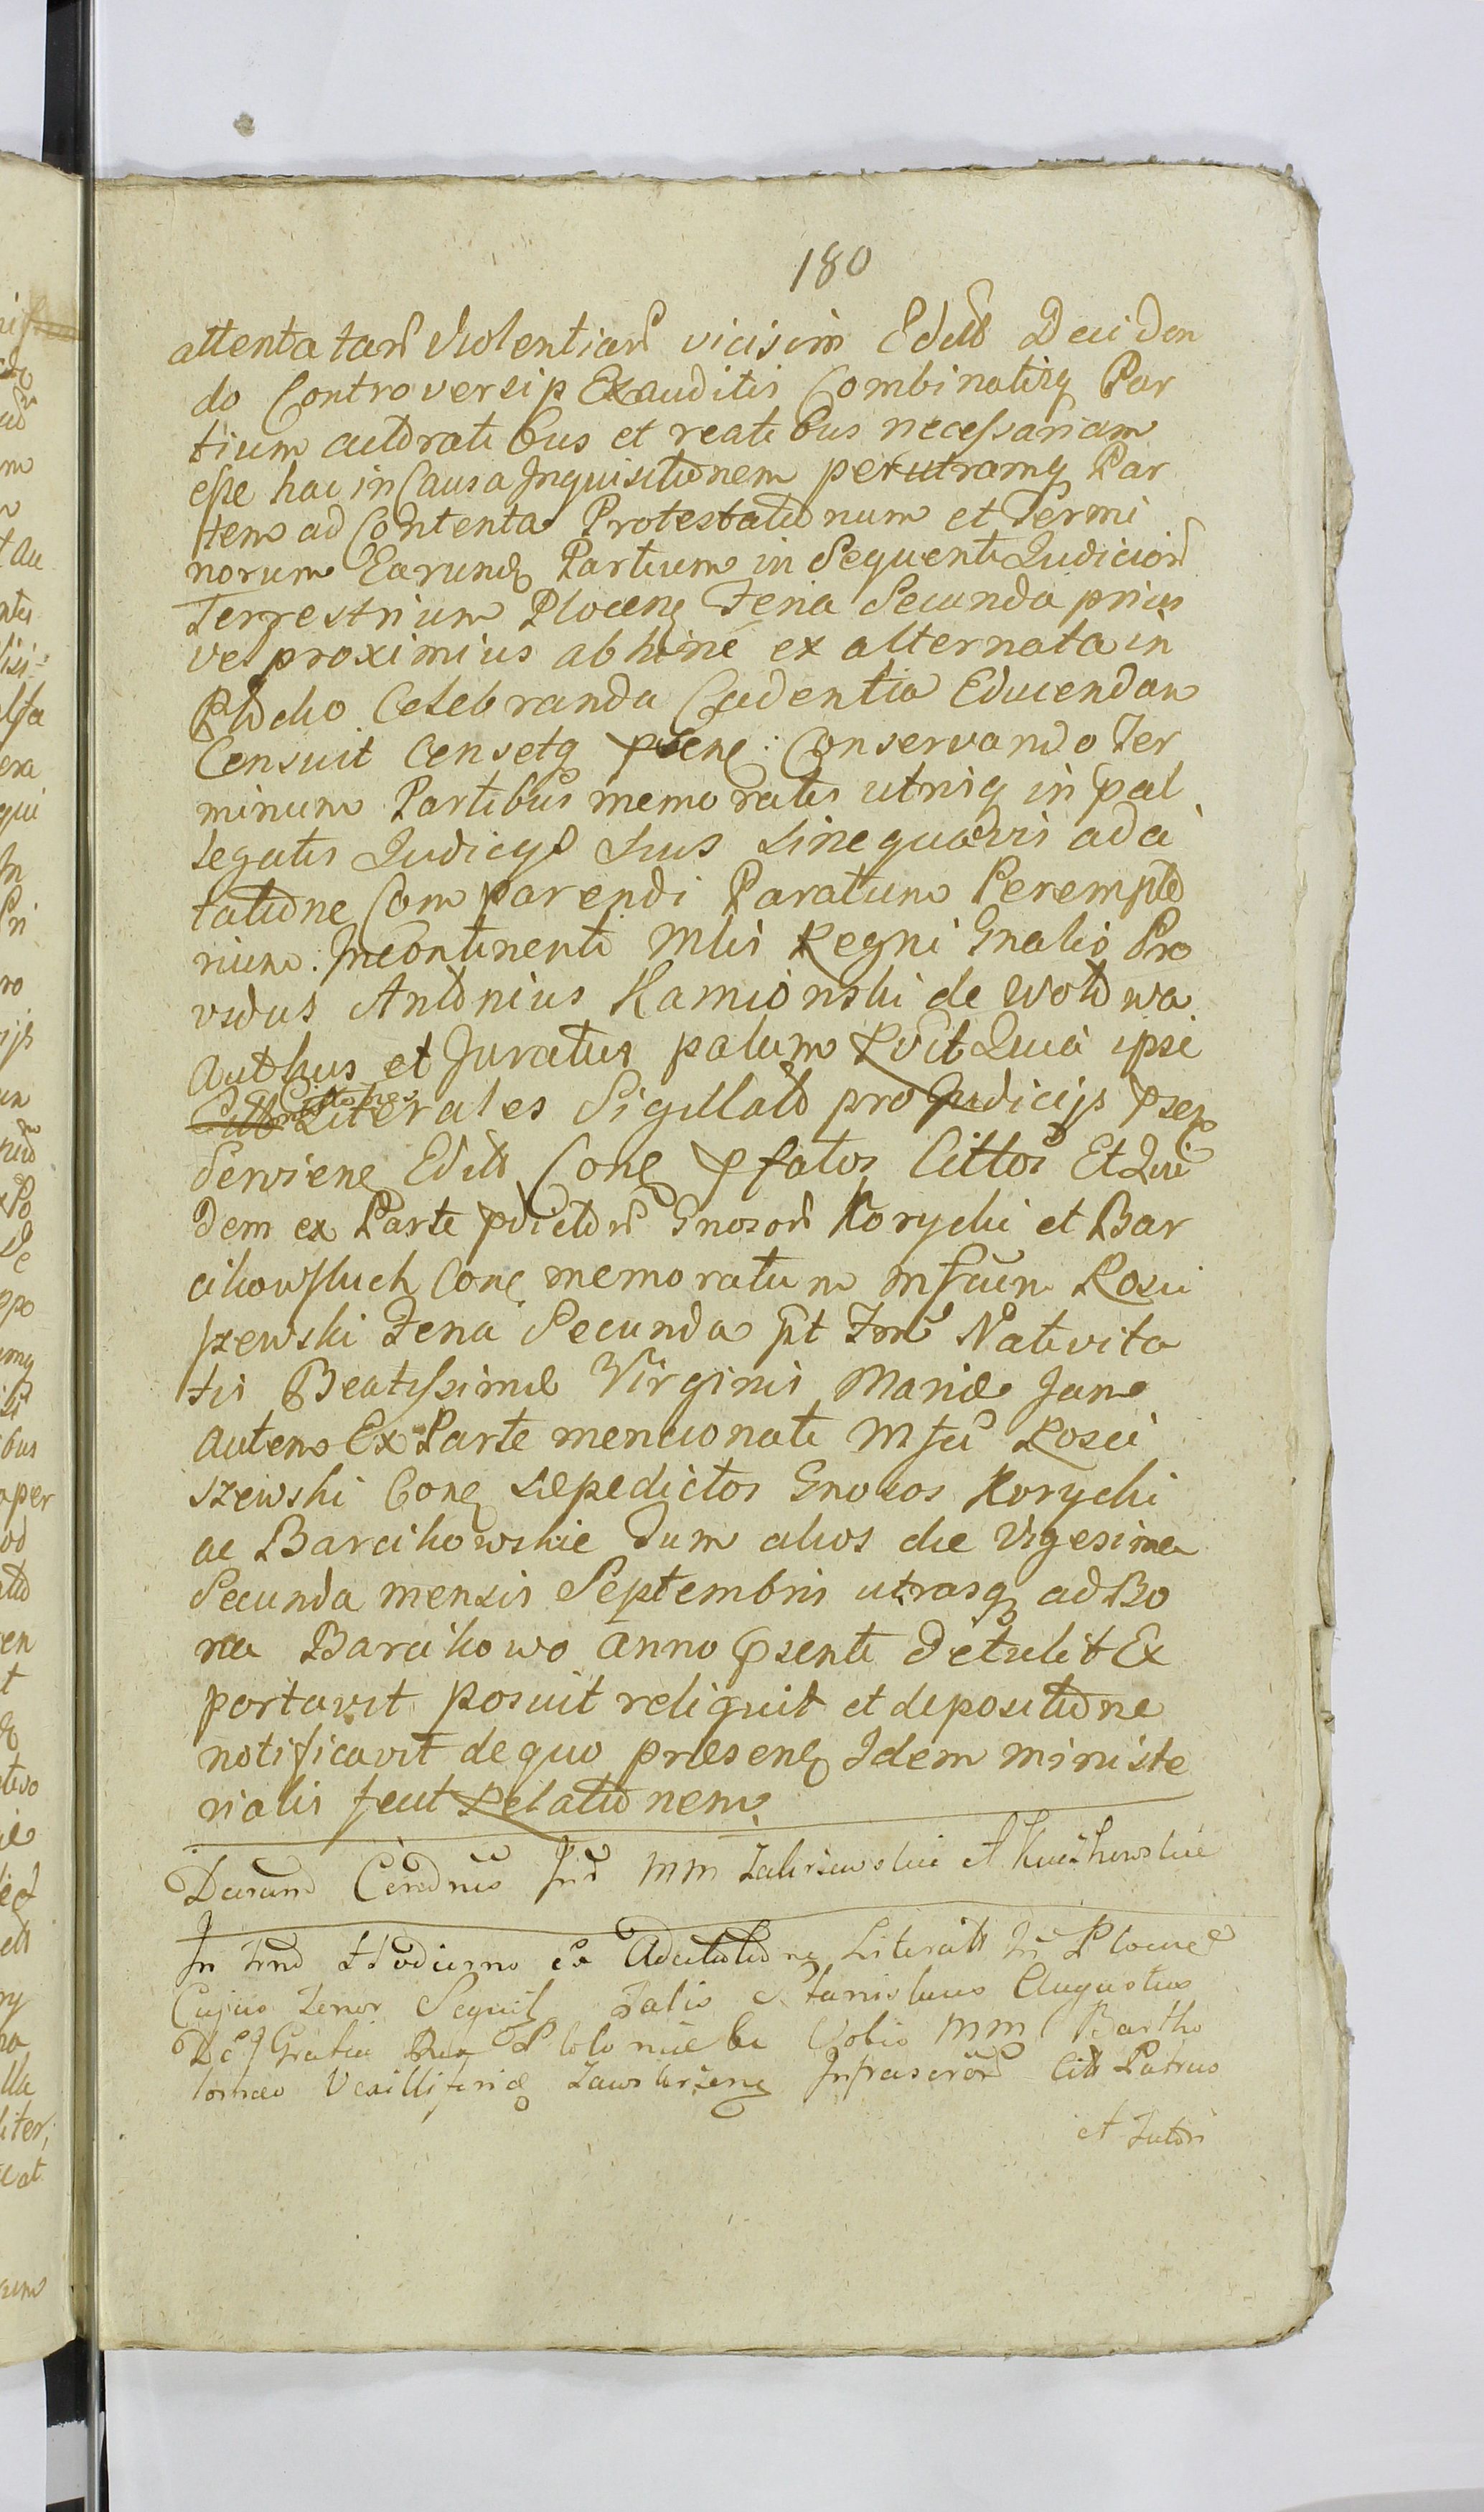 180
attentatar Violentiar vicisim Edit Deciden
do Controversijs Exauditis Combinatisq Par
tium actoratibus et reatibus necessariam
esse hac in Causa Inquisitionem per utramq Par
tem ad Contenta Protestationum et Termi
norum Earund Partium in Sequenti Judicior
Terrestrium Plocen Feria Secunda prius
vel proximius abhinc ex alternata in
Plocko Celebranda Cadentia Educendam
Censuit Censetq psene: Conservando Ter
minum Partibus memoratis utrisq in pal
legatis Judicys suus sine quavis adci
tatione Comparendi Paratum Perempto
rium. Incontinenti Mlis Regni Gnalis Pro
vidus Antonius Kamionski de Wolowa
Authus et Juratus palam Rvit Quia ipse
Citationes Literales Sigillato pro Judicijs psen
Serviene Edit Cone pfatos Cittos Et Qui
dem ex Parte pdictor Gnosor Korycki et Bar
cikowskich Cone memoratum Mfcum Rosci
szewski Feria Secunda pt Fm Nativita
tis Beatissimæ Virginis Mariæ Jam
autem Ex Parte mencionati Mfci Rosci
szewski Cone sæpedictos Gnosos Korycki
ac Barcikowskie Dum alios die Vigesima
Secunda mensis Septembris utrasq ad Bo
na Barcikowo Anno psenti Detulit Ex
portavit posuit reliquit et depositione
notificavit de quo præsene Idem ministe
rialis fecit Relationem.
MM Zakrzewskie et
In Hodierno ex Adcitatione Literali Plocne
Cujus Tenor Sequit Talis Stanislaus Augustus
Dei Gratia Rex Poloniæ Vobis MM Bartho
lomæo Vexillifero Zawskrzene Infrascr Citt Patruo
et Tutori